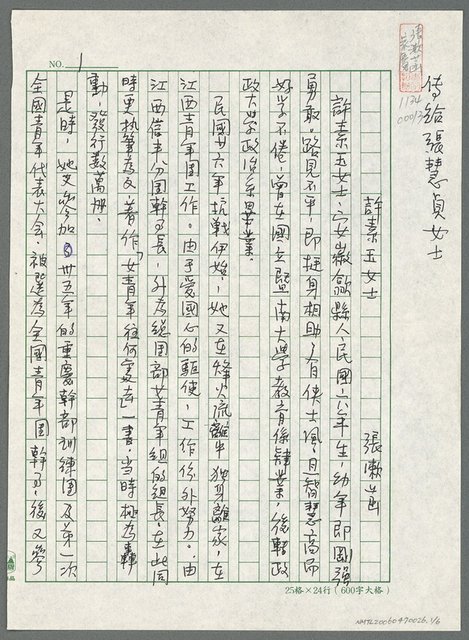 傅給張慧貞女士
許素玉女士
張漱菡
許素玉女士,安徽歙縣人,民國六年生,幼年即剛強
勇敢。路見不平,即挺身相助,有俠士風。且智慧高而
好學不倦,曾在國立暨南大學教育係肄業,後轉政
政大學政係畢業。
民國廿六年抗戰伊始,她又在烽火流離中獨身離家,在
江西青年團工作。由于愛國心的驅使,工作份外努力。由
江西信丰分團幹事長,升為總團部女青年組的組長。在此同
時更執筆為文著作「女青年往何處去」一書,當時極為轟
動,發行數萬冊。
是時,她又參加卅五年的重慶幹部訓練團及第一次
全國青年代表大會。被選為全國青年團幹事,後又參
NO. 1
25格×24行(600字大格)
NMTL20060470026.1/6
1134